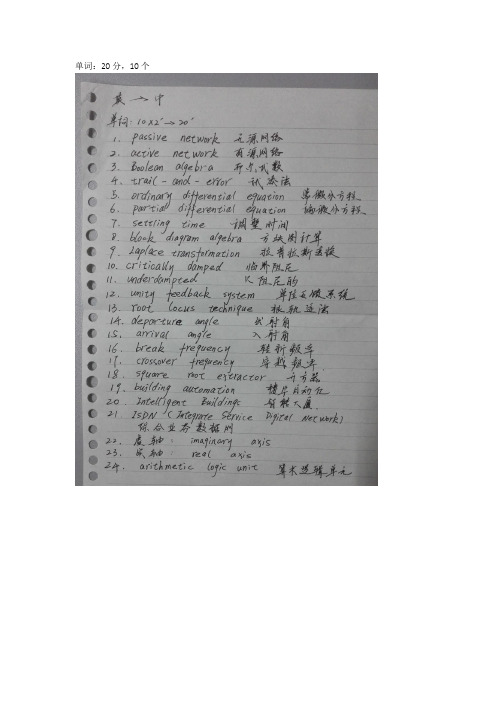 单词：20分，10个
英→中
单词：10×2'→20'
1. passive network 无源网络
2. active network 有源网络
3. Boolean algebra 布尔代数
4. trail-and-error 试凑法
5. ordinary differential equation 常微分方程
6. partial differential equation 偏微分方程
7. settling time 调整时间
8. block diagram algebra 方块图计算
9. Laplace transformation 拉普拉斯变换
10. critically damped 临界阻尼
11. underdampted 欠阻尼的
12. unity feedback system 单位反馈系统
13. root locus technique 根轨迹法
14. departure angle 出射角
15. arrival angle 入射角
16. break frequency 转折频率
17. crossover frequency 穿越频率
18. square root extractor 开方器
19. building automation 楼宇自动化
20. Intelligent Buildings 智能大厦
21. ISDN (Integrate Service Digital Network)
综合业务数据网
22. 虚轴: imaginary axis
23. 实轴: real axis
24. arithmetic logic unit 算术逻辑单元